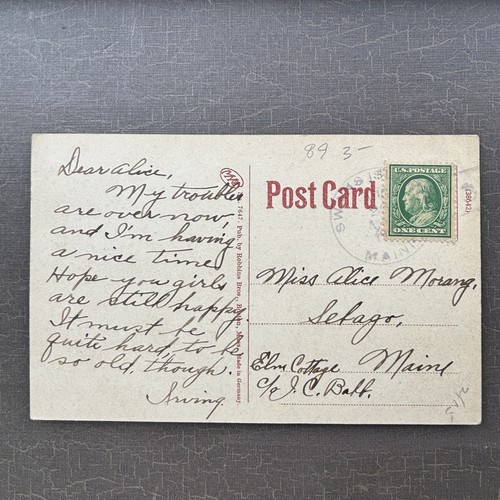 Dear Alice,
My troubles
are over now
and I'm having
a nice time.
Hope you girls
are still happy.
It must be
quite hard, to be
so old, though.
Irving.
7647. Pub. by Robbins Bros., Boston, Mass. Made in Germany.
89 3-
Post Card
U.S. POSTAGE
ONE CENT
SWANS IS
MAINE
(38642)
Miss Alice Morang,
Sebago,
Elm Cottage Maine
c/o J. C. Babb.